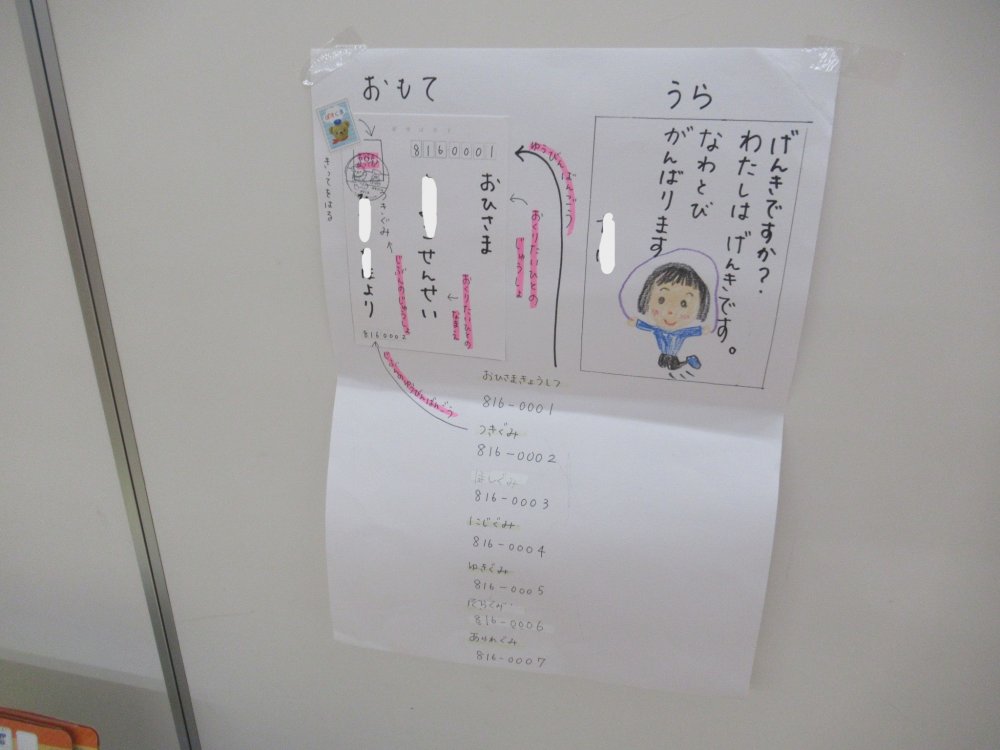 おもて
うら
8160001
おひさま
せんせい
つきぐみ
より
8160002
きってをはる
ゆうびんばんごう
おくりたいひとの
じゅうしょ
おくりたいひとの
なまえ
じぶんのじゅうしょ
じぶんのゆうびんばんごう
げんきですか?
わたしは げんきです。
なわとび
がんばります
おひさまきょうしつ
816-0001
つきぐみ
816-0002
ほしぐみ
816-0003
にじぐみ
816-0004
ゆきぐみ
816-0005
816-0006
あられぐみ
816-0007